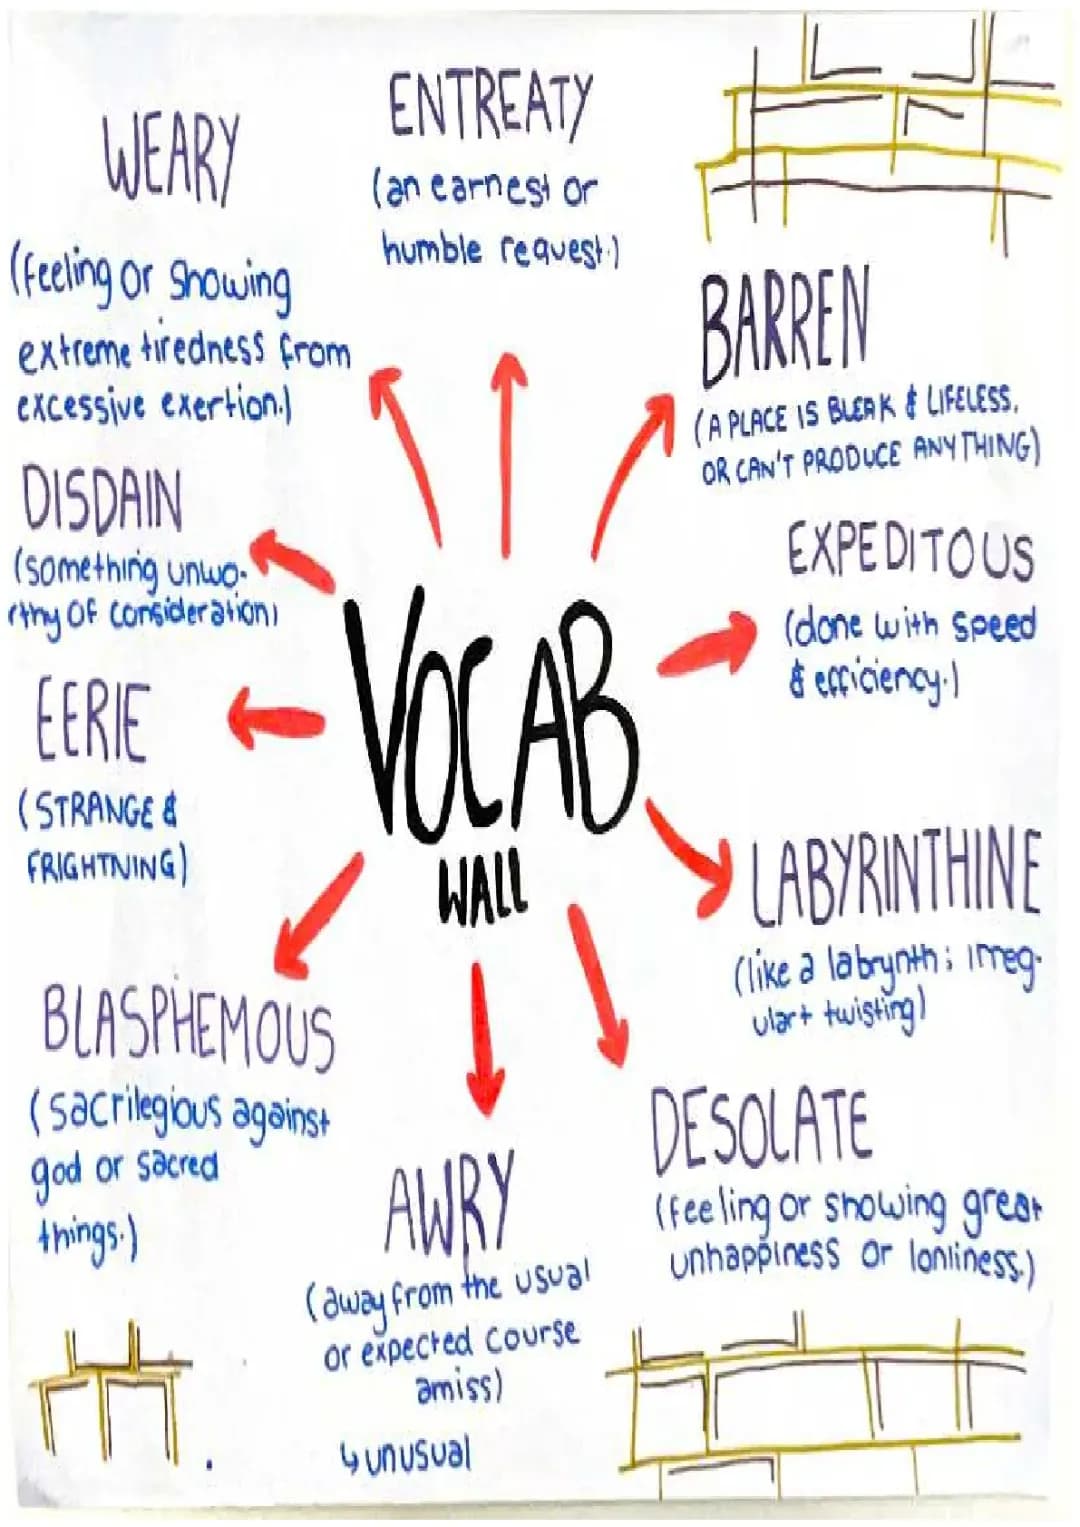 ENTREATY
(an earnest or
humble request.)
WEARY
(feeling or showing
extreme tiredness from
excessive exertion.)
BARREN
(A PLACE IS BLEAK & LIFELESS,
OR CAN'T PRODUCE ANYTHING)
DISDAIN
(something unwo-
rthy of consideration)
EXPEDITOUS
(done with speed
& efficiency.)
VOCAB
WALL
EERIE
(STRANGE &
FRIGHTNING)
LABYRINTHINE
(like a labrynth; irreg-
ular+ twisting)
BLASPHEMOUS
(sacrilegious against
god or sacred
things.)
DESOLATE
(feeling or showing great
unhappiness or lonliness.)
AWRY
(away from the usual
or expected course
amiss)
↳ unusual